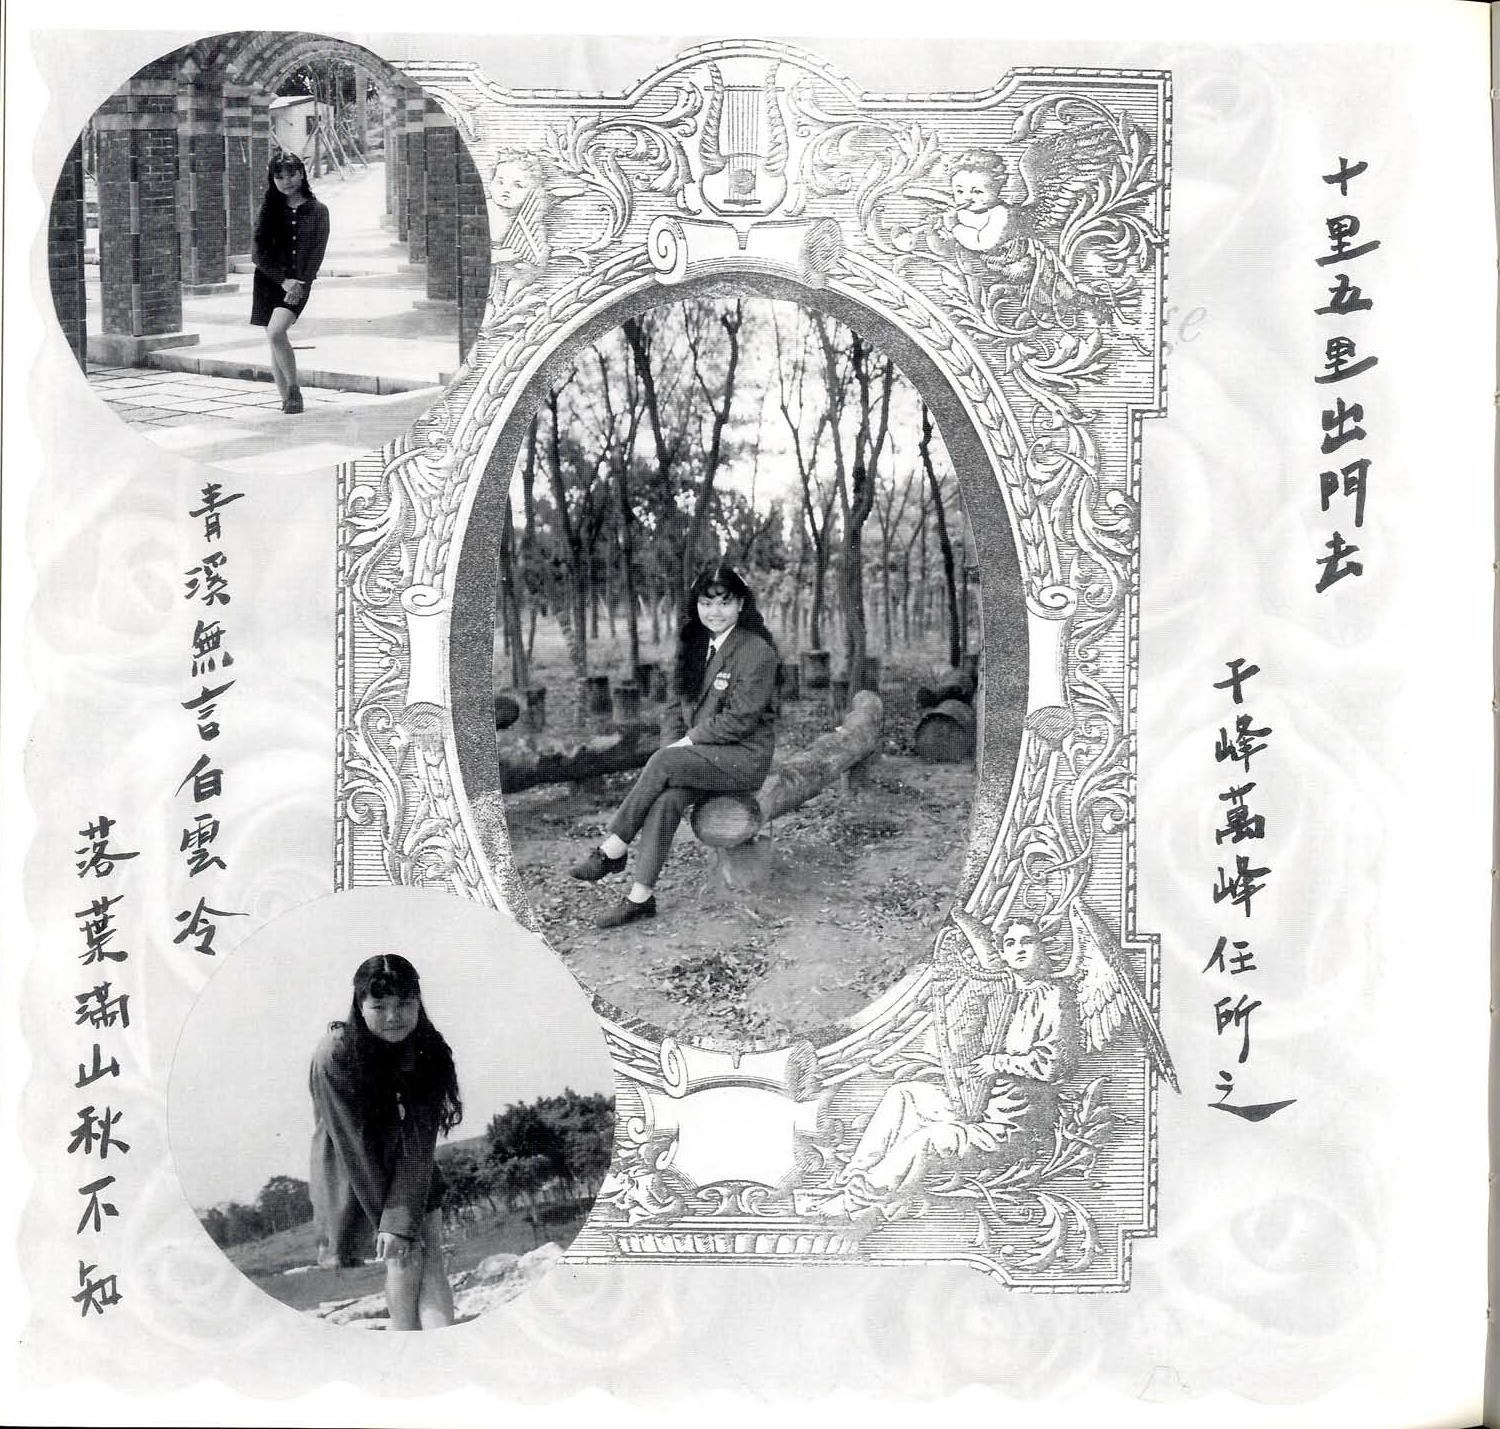 十里五里出門去
千峰萬峰任所之
青溪無言白雲冷
落葉滿山秋不知